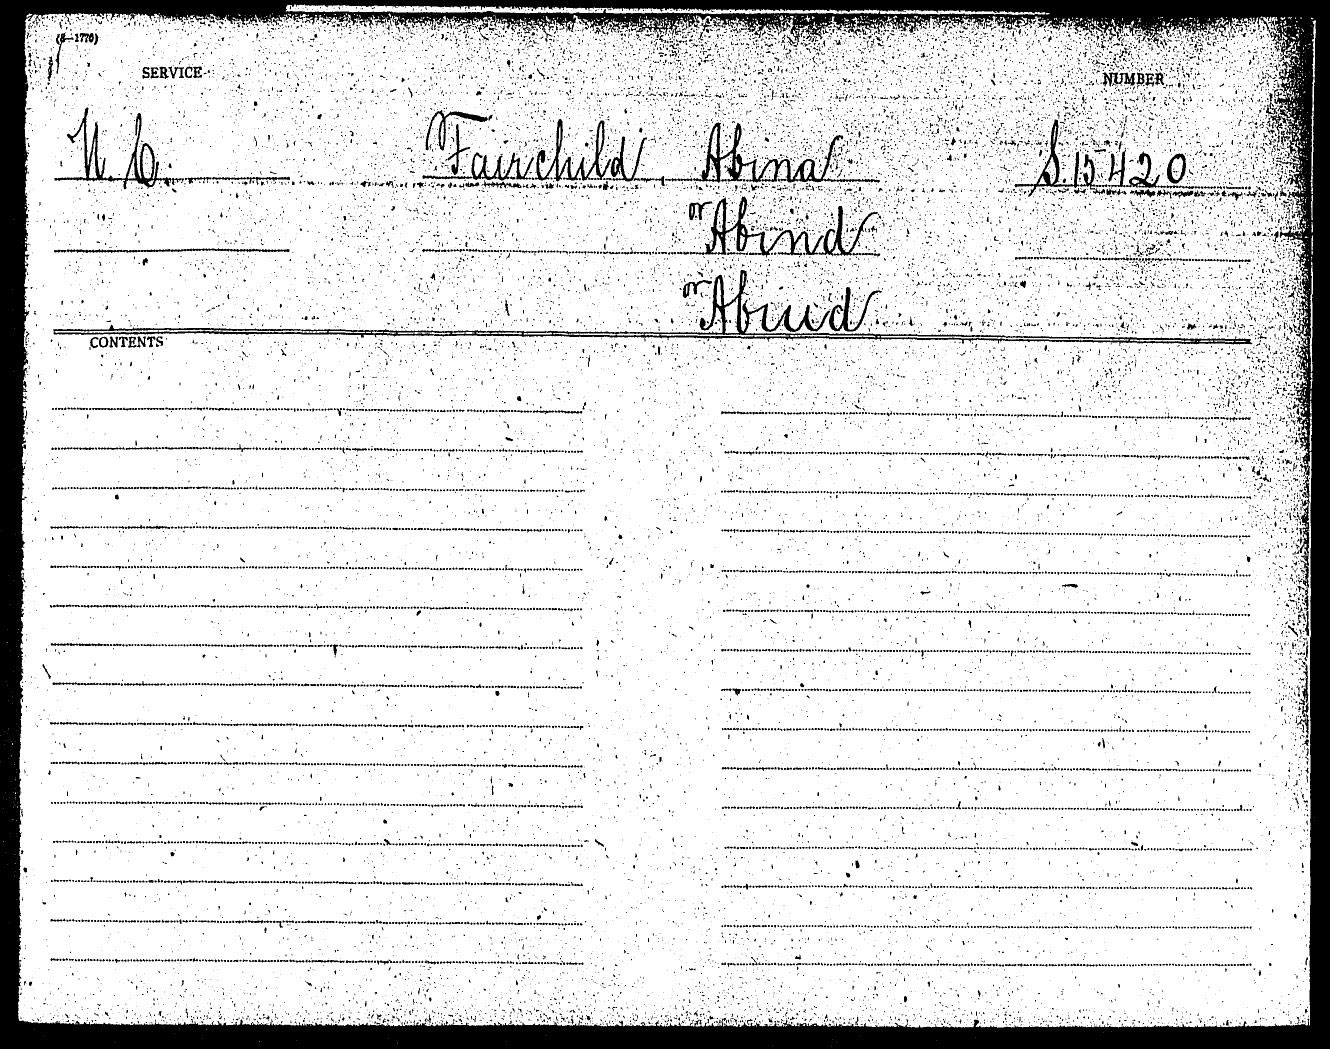 (3—1770)
SERVICE NUMBER
N. C. Fairchild, Abina S. 15420
or Abind
or Abiud
CONTENTS